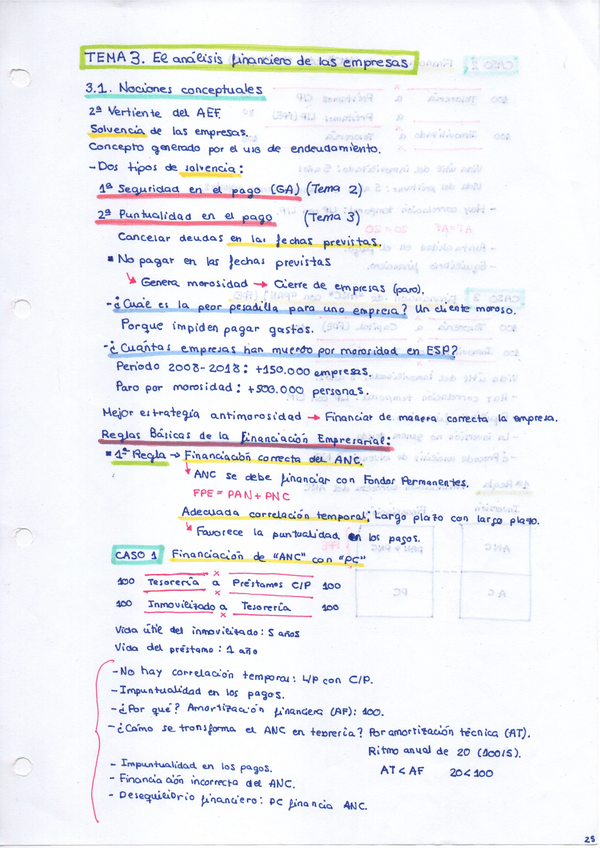 TEMA 3. El análisis financiero de las empresas
3.1. Nociones conceptuales
2ª Vertiente del AEF.
Solvencia de las empresas.
Concepto generado por el uso de endeudamiento.
- Dos tipos de solvencia:
1ª Seguridad en el pago (GA) (Tema 2)
2ª Puntualidad en el pago (Tema 3)
Cancelar deudas en las fechas previstas.
▪ No pagar en las fechas previstas
↳ Genera morosidad → Cierre de empresas (paro).
- ¿Cuál es la peor pesadilla para una empresa? Un cliente moroso.
Porque impiden pagar gastos.
- ¿Cuántas empresas han muerto por morosidad en ESP?
Periodo 2008-2018: +150.000 empresas.
Paro por morosidad: +500.000 personas.
Mejor estrategia antimorosidad → Financiar de manera correcta la empresa.
Reglas Básicas de la financiación Empresarial:
▪ 1ª Regla → Financiación correcta del ANC.
↳ ANC se debe financiar con Fondos Permanentes.
FPE = PAN + PNC
Adecuada correlación temporal: Largo plazo con largo plazo.
↳ Favorece la puntualidad en los pagos.
CASO 1 Financiación de "ANC" con "PC"
100 Tesorería a Préstamos C/P 100
100 Inmovilizado a Tesorería 100
Vida útil del inmovilizado: 5 años
Vida del préstamo: 1 año
- No hay correlación temporal: L/P con C/P.
- Impuntualidad en los pagos.
- ¿Por qué? Amortización financiera (AF): 100.
- ¿Cómo se transforma el ANC en tesorería? Por amortización técnica (AT).
Ritmo anual de 20 (100/5).
- Impuntualidad en los pagos. AT < AF 20 < 100
- Financiación incorrecta del ANC.
- Desequilibrio financiero: PC financia ANC.
25